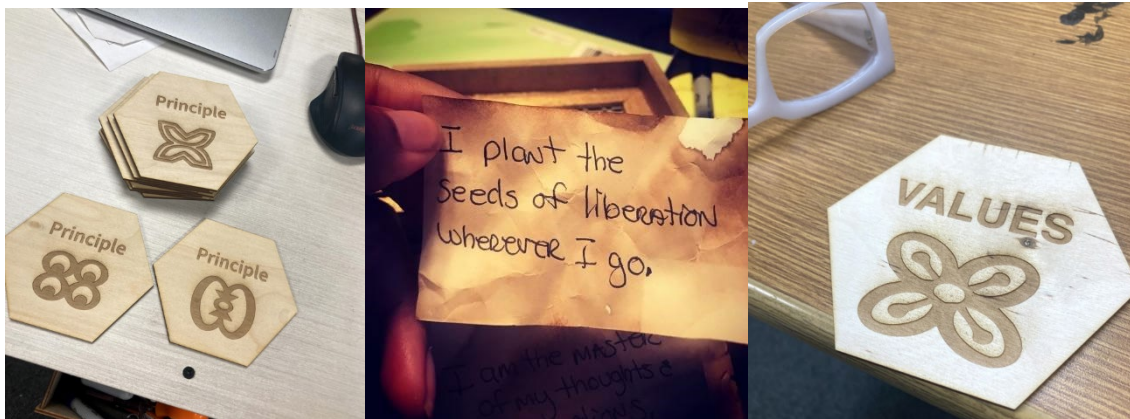 Principle
Principle
Principle
I plant the
seeds of liberation
wherever I go.
I am the master
of my thoughts &
VALUES